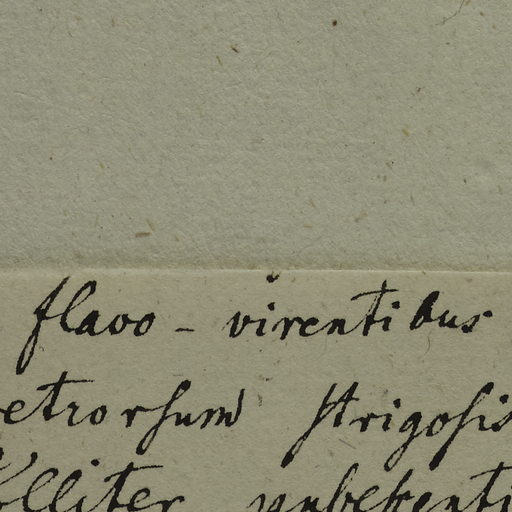 flavo - virentibus
retrorsum strigosis
molliter pubescenti